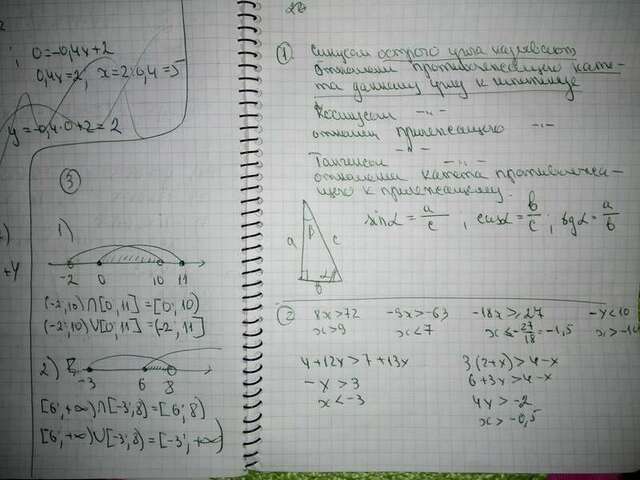 0=-0,4y+2
0,4y=2; x=2:0,4=5
y=0,4·0+2=2
③
1)
-2 0 10 11
(-2;10)∩[0;11]=[0;10)
(-2;10)∪[0;11]=(-2;11]
2)
-3 6 8
[6;+∞)∩[-3;8)=[6;8)
[6;+∞)∪[-3;8)=[-3;+∞)
① Синусом острого угла называют
отношение противолежащего кате-
та данному углу к гипотенузе
Косинусом -"-
отношен прилежащего -"-
Тангенсом -"-
отношении катета противолежа-
щего к прилежащему.
sin α = a/c, cos α = b/c; tg α = a/b
a
β
c
b
α
② 8x>72 -9x>-63 -18x>27 -x<10
x>9 x<7 x<-27/18=-1,5
4+12x>7+13x 3(2+x)>4-x
-x>3 6+3x>4-x
x<-3 4x>-2
x>-0,5